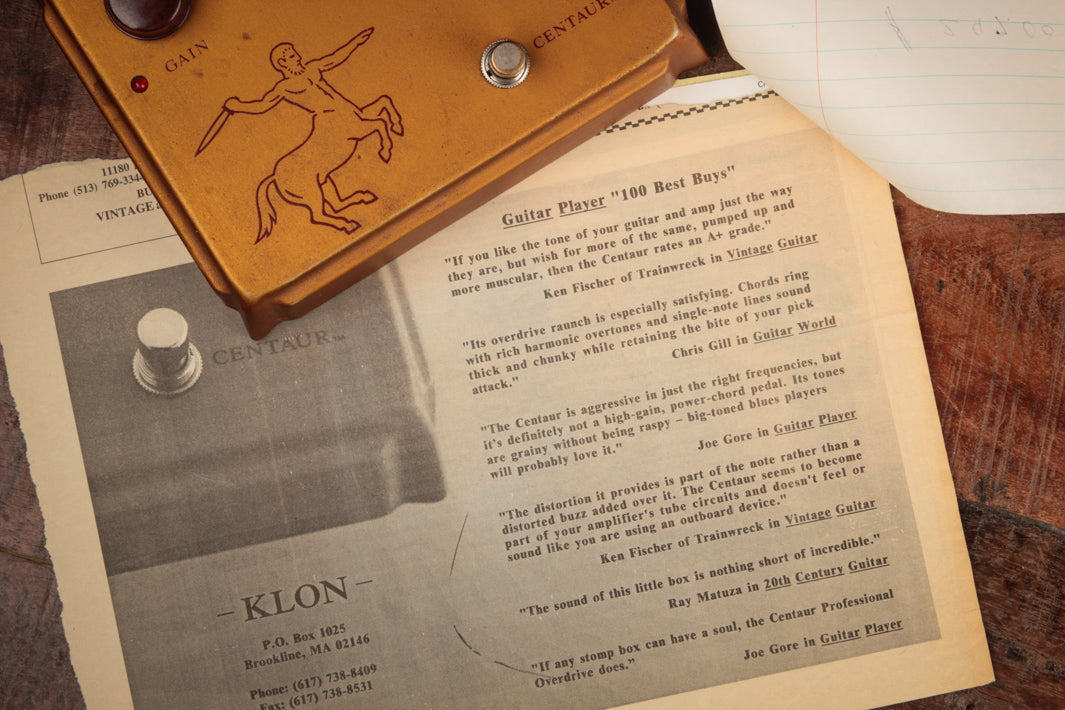 GAIN
CENTAUR
11180
Phone (513) 769-334
VINTAGE
CENTAUR™
– KLON –
P.O. Box 1025
Brookline, MA 02146
Phone: (617) 738-8409
Fax: (617) 738-8531
Guitar Player "100 Best Buys"
"If you like the tone of your guitar and amp just the way
they are, but wish for more of the same, pumped up and
more muscular, then the Centaur rates an A+ grade."
Ken Fischer of Trainwreck in Vintage Guitar
"Its overdrive raunch is especially satisfying. Chords ring
with rich harmonic overtones and single-note lines sound
thick and chunky while retaining the bite of your pick
attack."
Chris Gill in Guitar World
"The Centaur is aggressive in just the right frequencies, but
it's definitely not a high-gain, power-chord pedal. Its tones
are grainy without being raspy – big-toned blues players
will probably love it."
Joe Gore in Guitar Player
"The distortion it provides is part of the note rather than a
distorted buzz added over it. The Centaur seems to become
part of your amplifier's tube circuits and doesn't feel or
sound like you are using an outboard device."
Ken Fischer of Trainwreck in Vintage Guitar
"The sound of this little box is nothing short of incredible."
Ray Matuza in 20th Century Guitar
"If any stomp box can have a soul, the Centaur Professional
Overdrive does."
Joe Gore in Guitar Player